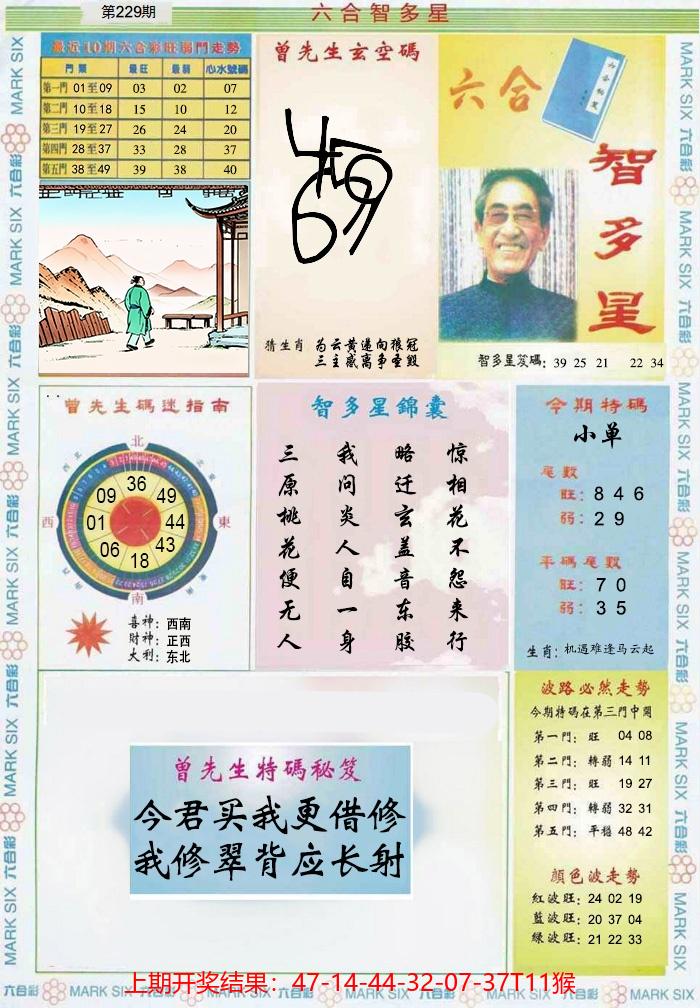 第229期
六合智多星
最近10期六合彩旺弱門走勢
門 類 最旺 最弱 心水號碼
第一門 01至09 03 02 07
第二門 10至18 15 10 12
第三門 19至27 26 24 20
第四門 28至37 33 28 37
第五門 38至49 39 38 40
曾先生玄空碼
猜生肖 为云黄遥向猿冠
三主感离争圣毁
六合
智多星
智多星笈碼: 39 25 21 22 34
曾先生碼迷指南
北
東
南
西
36
49
44
43
18
06
01
09
喜神: 西南
財神: 正西
大利: 东北
智多星錦囊
三原桃花便无人
我问炎人自一身
略迁玄盖音东胶
惊相花不怨来行
今期特碼
小单
尾數
旺: 8 4 6
弱: 2 9
平碼尾數
旺: 7 0
弱: 3 5
生肖: 机遇难逢马云起
曾先生特碼秘笈
今君买我更借修
我修翠背应长射
波路必然走勢
今期特碼在第三門中開
第一門: 旺 04 08
第二門: 轉弱 14 11
第三門: 旺 19 27
第四門: 轉弱 32 31
第五門: 平穩 48 42
顏色波走勢
紅波旺: 24 02 19
藍波旺: 20 37 04
绿波旺: 21 22 33
上期开奖结果：47-14-44-32-07-37T11猴
六合彩 MARK SIX 六合彩 MARK SIX 六合彩 MARK SIX 六合彩 MARK SIX 六合彩